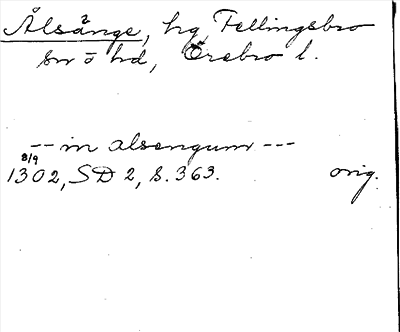 Ålsänge, hg, Fellingsbro
sn o hd, Örebro l.
-- in alsengum ---
8/9
1302, SD 2, s. 363. orig.